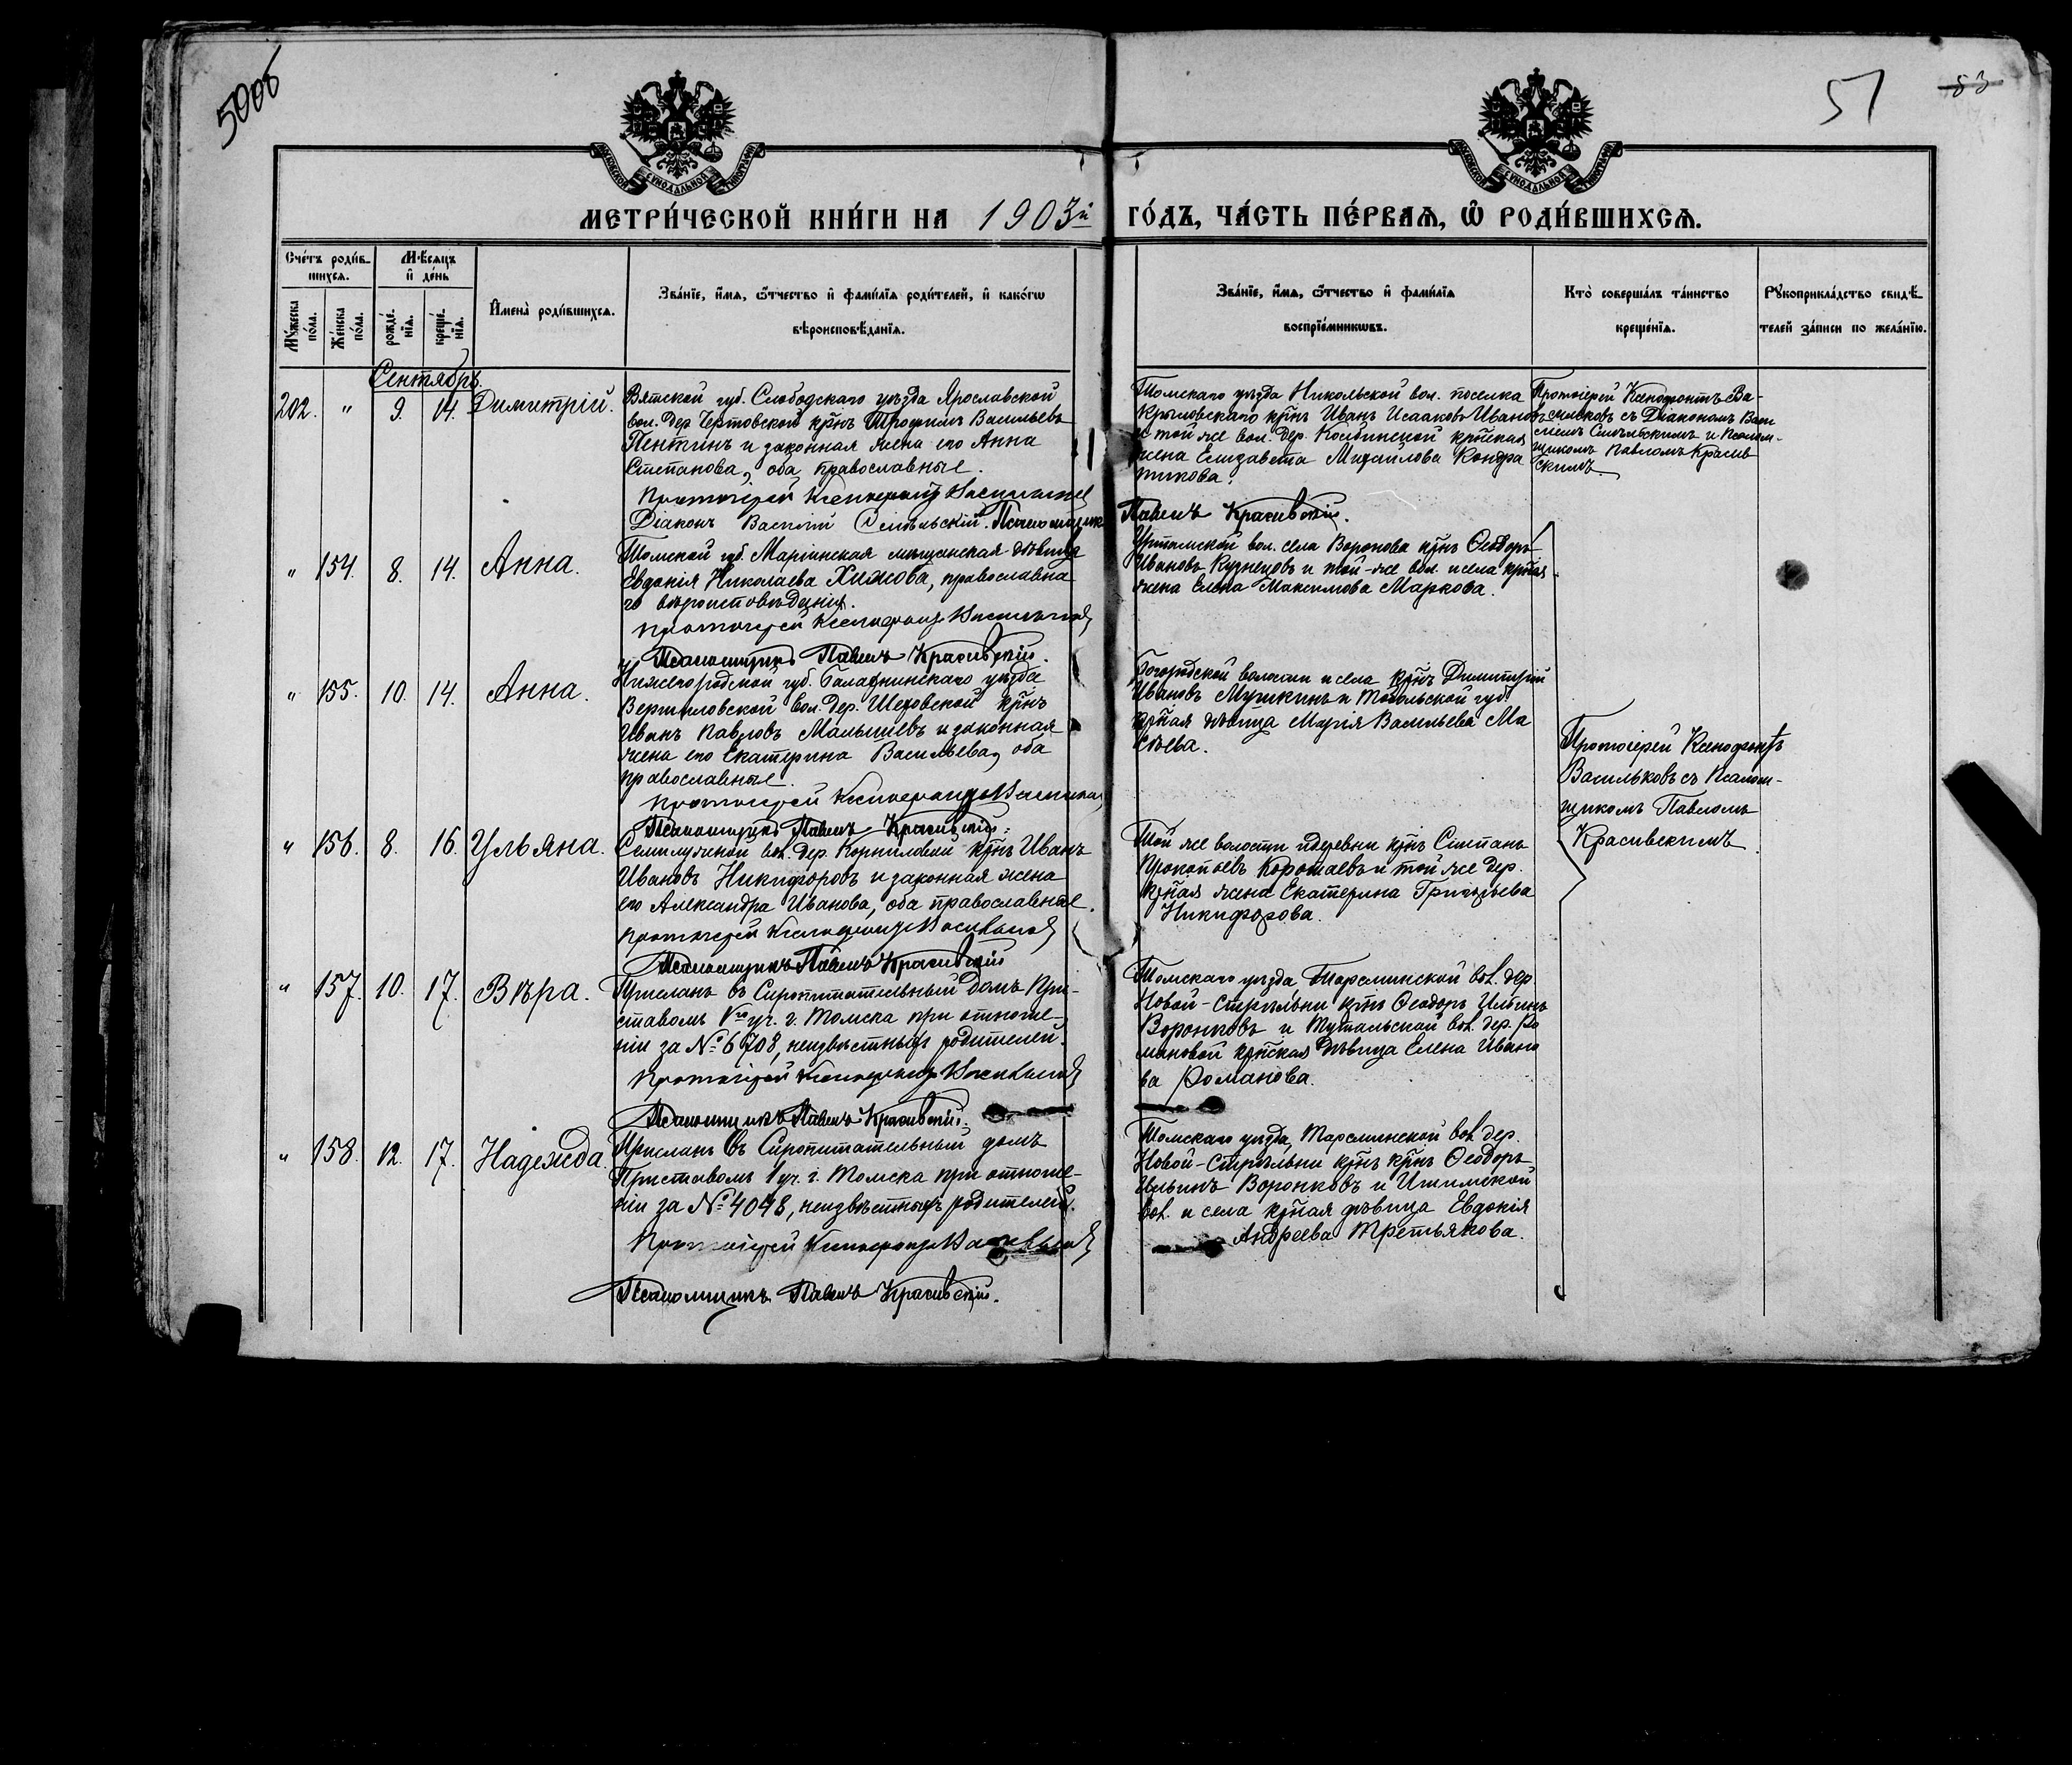 50об
51
53
МОСКОВСКОЙ СѴНОДАЛЬНОЙ ТИПОГРАФІИ
МОСКОВСКОЙ СѴНОДАЛЬНОЙ ТИПОГРАФІИ
МЕТРИ́ЧЕСКОЙ КНИ́ГИ НА 1903й ГО́ДЪ, ЧА́СТЬ ПЕ́РВАѦ, Ѡ҆ РОДИ́ВШИХСѦ.
Сче́тъ роди́в-
шихсѧ.
Мꙋ́жеска по́ла.
Же́нска по́ла.
Мѣ́сѧцъ и҆ де́нь
рожде́-нїѧ.
креще́-нїѧ.
И҆мена̀ роди́вшихсѧ.
Зва́нїе, и҆́мѧ, ѻ҆́тчество и҆ фами́лїѧ роди́телей, и҆ како́гѡ
вѣроисповѣ́данїѧ.
Зва́нїе, и҆́мѧ, ѻ҆́тчество и҆ фами́лїѧ
воспрїе́мникѡвъ.
Кто̀ соверша́лъ та́инство
креще́нїѧ.
Рꙋкоприкла́дство свидѣ́-
телей за́писи по жела́нїю.
Сентябрь.
202. " 9. 14. Димитрій.
Вятской губ. Слободскаго уѣзда Ярославской
вол. дер. Чертовской крн҃ъ Трофимъ Васильевъ
Пентинъ и законная жена его Анна
Степанова, оба православные.
Протоіерей Ксенофонтъ Васильковъ
Діаконъ Василій Смѣльскій. Псаломщикъ
Павелъ Красивскій.
Томскаго уѣзда Никольской вол. поселка
Крыловскаго крн҃ъ Иванъ Исааковъ Ивановъ
и той же вол. дер. крн҃ская
жена Елизавета Михайлова Кондра
тикова.
Протоіерей Ксенофонтъ Ва-
сильковъ съ Діакономъ Васи
ліемъ Смѣльскимъ и Псалом-
щикомъ Павломъ Красив
скимъ.
" 154. 8. 14. Анна.
Томской губ. Маріинская мѣщанская дѣвица
Евдокія Николаева Хижова, православна
го вѣроисповѣданія.
Протоіерей Ксенофонтъ Васильковъ
Псаломщикъ Павелъ Красивскій.
Уртамской вол. села Воронова крн҃ъ Ѳеодоръ
Ивановъ Кузнецовъ и той-же вол. и села крн҃ая
жена Елена Максимова Маркова.
" 155. 10. 14. Анна.
Нижегородской губ. Балахнинскаго уѣзда
Вершиловской вол. дер. Шеховской крн҃ъ
Иванъ Павловъ Малышевъ и законная
жена его Екатерина Васильева, оба
православные.
Протоіерей Ксенофонтъ Васильковъ
Псаломщикъ Павелъ Красивскій.
Богородской волости и села крн҃ъ Димитрій
Ивановъ Мушкинъ и Тобольской губ.
крн҃ая дѣвица Марія Васильева Ма
сѣева.
Протоіерей Ксенофонтъ
Васильковъ съ Псалом-
щикомъ Павломъ
Красивскимъ
" 156. 8. 16. Ульяна.
Семилужной вол. дер. Корниловой крн҃ъ Иванъ
Ивановъ Никифоровъ и законная жена
его Александра Иванова, оба православные.
Протоіерей Ксенофонтъ Васильковъ
Псаломщикъ Павелъ Красивскій
Той же волости и деревни крн҃ъ Степанъ
Прокопьевъ Коротаевъ и той же дер.
крн҃ая жена Екатерина Григорьева
Никифорова.
" 157. 10. 17. Вѣра.
Присланъ въ Сиропитательный домъ При-
ставомъ Vго уч. г. Томска при отноше-
ніи за № 6708, неизвѣстныхъ родителей.
Протоіерей Ксенофонтъ Васильковъ
Псаломщикъ Павелъ Красивскій.
Томскаго уѣзда, Тарсминской вол. дер.
Новой-Стрѣльни крн҃ъ Ѳеодоръ Ильинъ
Воронковъ и Тутальской вол. дер. Ро
мановой крн҃ская дѣвица Елена Ивано
ва Романова.
" 158. 12. 17. Надежда.
Присланъ въ Сиропитательный домъ
Приставомъ 1 уч. г. Томска при отноше-
ніи за № 4048, неизвѣстныхъ родителей.
Протоіерей Ксенофонтъ Васильковъ
Псаломщикъ Павелъ Красивскій.
Томскаго уѣзда, Тарсминской вол. дер.
Новой-Стрѣльни крн҃ъ крн҃ъ Ѳеодоръ
Ильинъ Воронковъ и Ишимской
вол. и села крн҃ая дѣвица Евдокія
Андреева Третьякова.